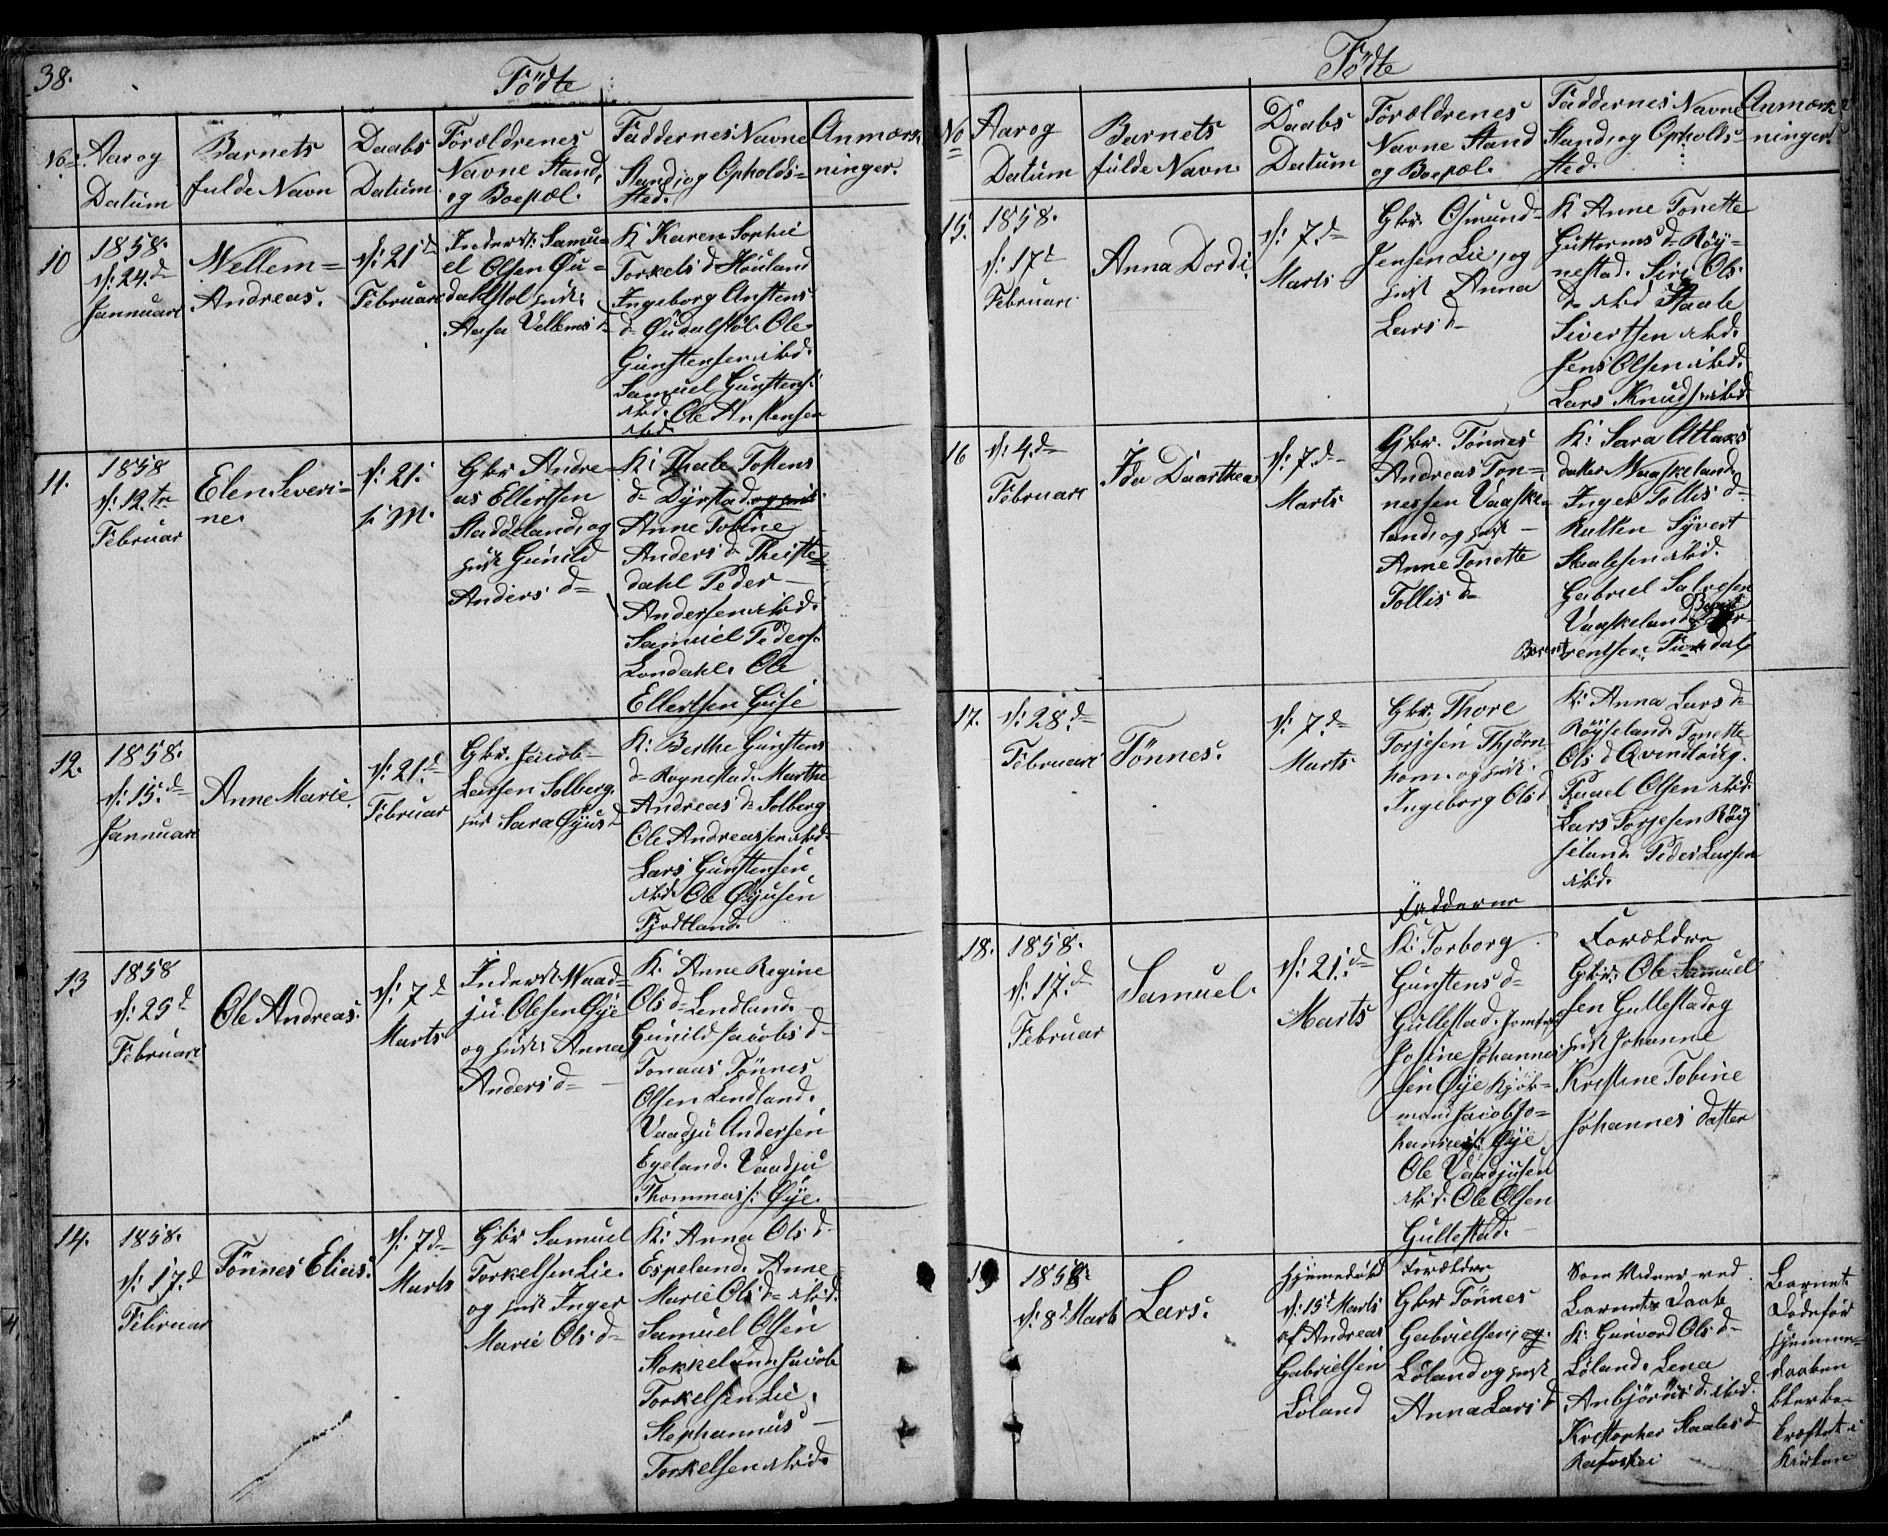 38.
Födte
No: Aar og Datum
Barnets fulde Navn
Daabs Datum
Forældrenes Navne Stand, og Boepæl.
Faddernes Navne Stand, og Opholds= sted.
Anmærk= ninger.
10
1858.
d: 24.d
Jannuari
Wellem=
Andreas.
d: 21d
Februari
Inderst: Samu=
el Olsen Øu=
dahlstøl hust:
Aasa Vellems d=
K Karen Sophie
Torkels d Houland
Ingeborg Anstens
d= Øudalstøl. Ole
Gunstensen ibd.
Samuel Gunstens:
ibd. Ole Anstensen
ibd
11.
1858
d: 12.te
Februar
Elen Severi=
ne.
d: 21.
s: M.
Gbr Andre=
as Ellertsen
Staddeland, og
hust Gunild
Anders d=
K: Thale Tollens
d= Dyrstad
Anne Tobine
Anders d= Theiste=
dahl Peder
Andersen ibid.
Samuel Peders:
Londahl. Ole
Ellertsen Guse
12.
1858.
d: 15.d
Jannuari
Anne Marie.
d: 21.d
Februar
Gbr. Jacob
Larsen Solberg.
hust Sara Øyus d
K: Berthe Gunstens
d= Røynestad. Marthe
Andreas d= Solberg
Ole Andreassen ibd.
Lars Gunstensen
ibd. Ole Øyusen
Fjodtland.
13
1858
d: 25d
Februari
Ole Andreas.
d: 7d
Marts
Inderst Waad=
ju. Olesen Øye
og hust: Anna
Anders d=
K. Anne Regine
Ols d= Lendland.
Gunild Jacobs d=
Tonaas Tönnes
Olsen Lendland.
Vaadju Andersen
Egeland. Vaadju
Thommass: Øye.
14.
1858.
d: 17.d
Februar
Tönnes Elias.
d: 7d
Marts
Gbr Samuel
Torkelsen Lie.
og hust Inger
Marie Ols d=
K: Anna Ols d
Espeland. Anne
Marie Ols d= ibid.
Samuel Olsen
Stokkeland. Jacob
Torkelsen Lie.
Stephannus
Torkelsen ibid.
Födte
No Aar og Datum
Barnets fulde Navn
Daabs Datum
Forældrenes Navne Stand og Boepæl.
Faddernes Navne Stand, og Opholds= sted.
Anmærk= ninger.
15.
1858.
d: 17d
Februari
Anna Dordi.
d: 7.d
Marts
Gbr. Osmund
Jensen Lie, og
hust Anna
Lars d=
K Anne Tonette
Guttorms d= Röy=
nestad. Siri Ols
d= ibd Staale
Sivertsen ibd.
Jens Olsen ibd.
Lars Knuds ibd
16
d: 4.d
Februari
Ida Daarthea
d: 7.d
Marts
Gbr. Tönnes
Andreas Tön=
nessen Vaaske
land, og hust
Anne Tonette
Tollis d=
K: Sara Attaks
datter Waaskeland
Inger Tollis d=
Kulien Syvert
Staalesen ibd.
Gabriel Salvesen
Vaaskeland
17.
d: 28.d
Februari
Tönnes.
d: 7.d
Marts
Gbr. Thore
Torjesen Thjörn
hom. og hust.
Ingeborg Ols d
K: Anna Lars d=
Röyseland. Tonette
Ols d Qvindlaug.
Paael Olsen ibid.
Lars Torjesen Röy
seland Peder Larsen
ibd.
18.
1858.
d: 17.d
Februar
Samuel.
d: 21.d
Marts
Fadderne
K: Torborg
Gunstens d=
Gullestad. Jomfru
Josine Johannes
sen Øye Kjøb=
mand Jacob Jo=
hannes: Øye
Ole Vaadjusen
ibd. Ole Olsen
Gullestad.
Forældre
Gbr: Ole Samuel
sen Gullestad og
hust Johanne
Kristine Tobine
Johannes datter
19
1858.
d: 8d Marts
Lars.
Hjemedöbd
d: 15d Marts
af Andreas
Gabrielsen
Löland
Forældre
Gbr Tönnes
Gabrielsen
Löland og hust
Anna Lars d
Som Vidner ved
Barnets Daab
K. Gurvord Ols d=
Löland. Lena
Anbjörns d. ibid.
Kristopher Staales d=
Barnet
Döde för
Hjemme=
daaben
blev be=
kræftet i
Kirken